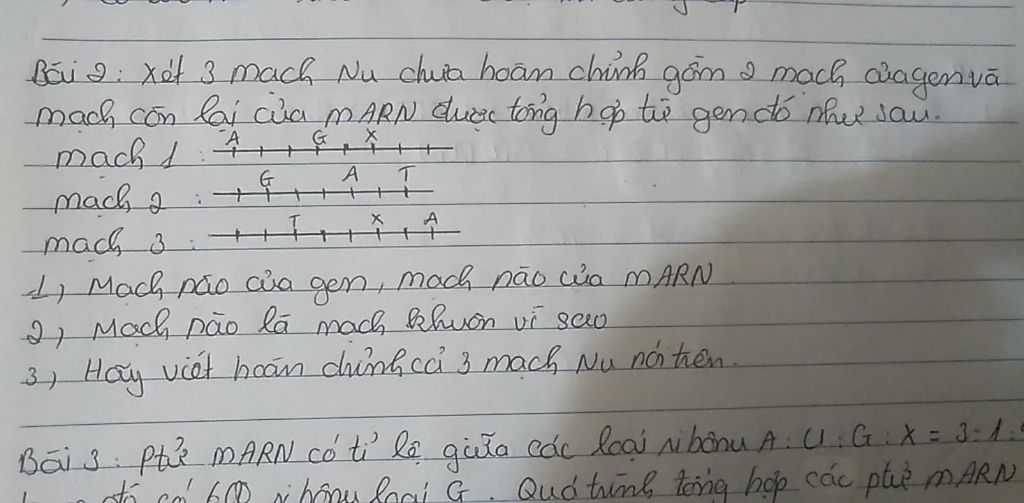 Bài 2: Xét 3 mạch Nu chưa hoàn chỉnh gồm 2 mạch của gen và
mạch còn lại của mARN được tổng hợp từ gen đó như sau.
mạch 1: A G X
mạch 2: G A T
mạch 3: T X A
1, Mạch nào của gen, mạch nào của mARN
2, Mạch nào là mạch khuôn vì sao
3, Hãy viết hoàn chỉnh cả 3 mạch Nu nói trên.
Bài 3: Ptử mARN có tỉ lệ giữa các loại ribônu A:U:G:X = 3:1:
đó có 600 ribônu loại G. Quá trình tổng hợp các ptử mARN